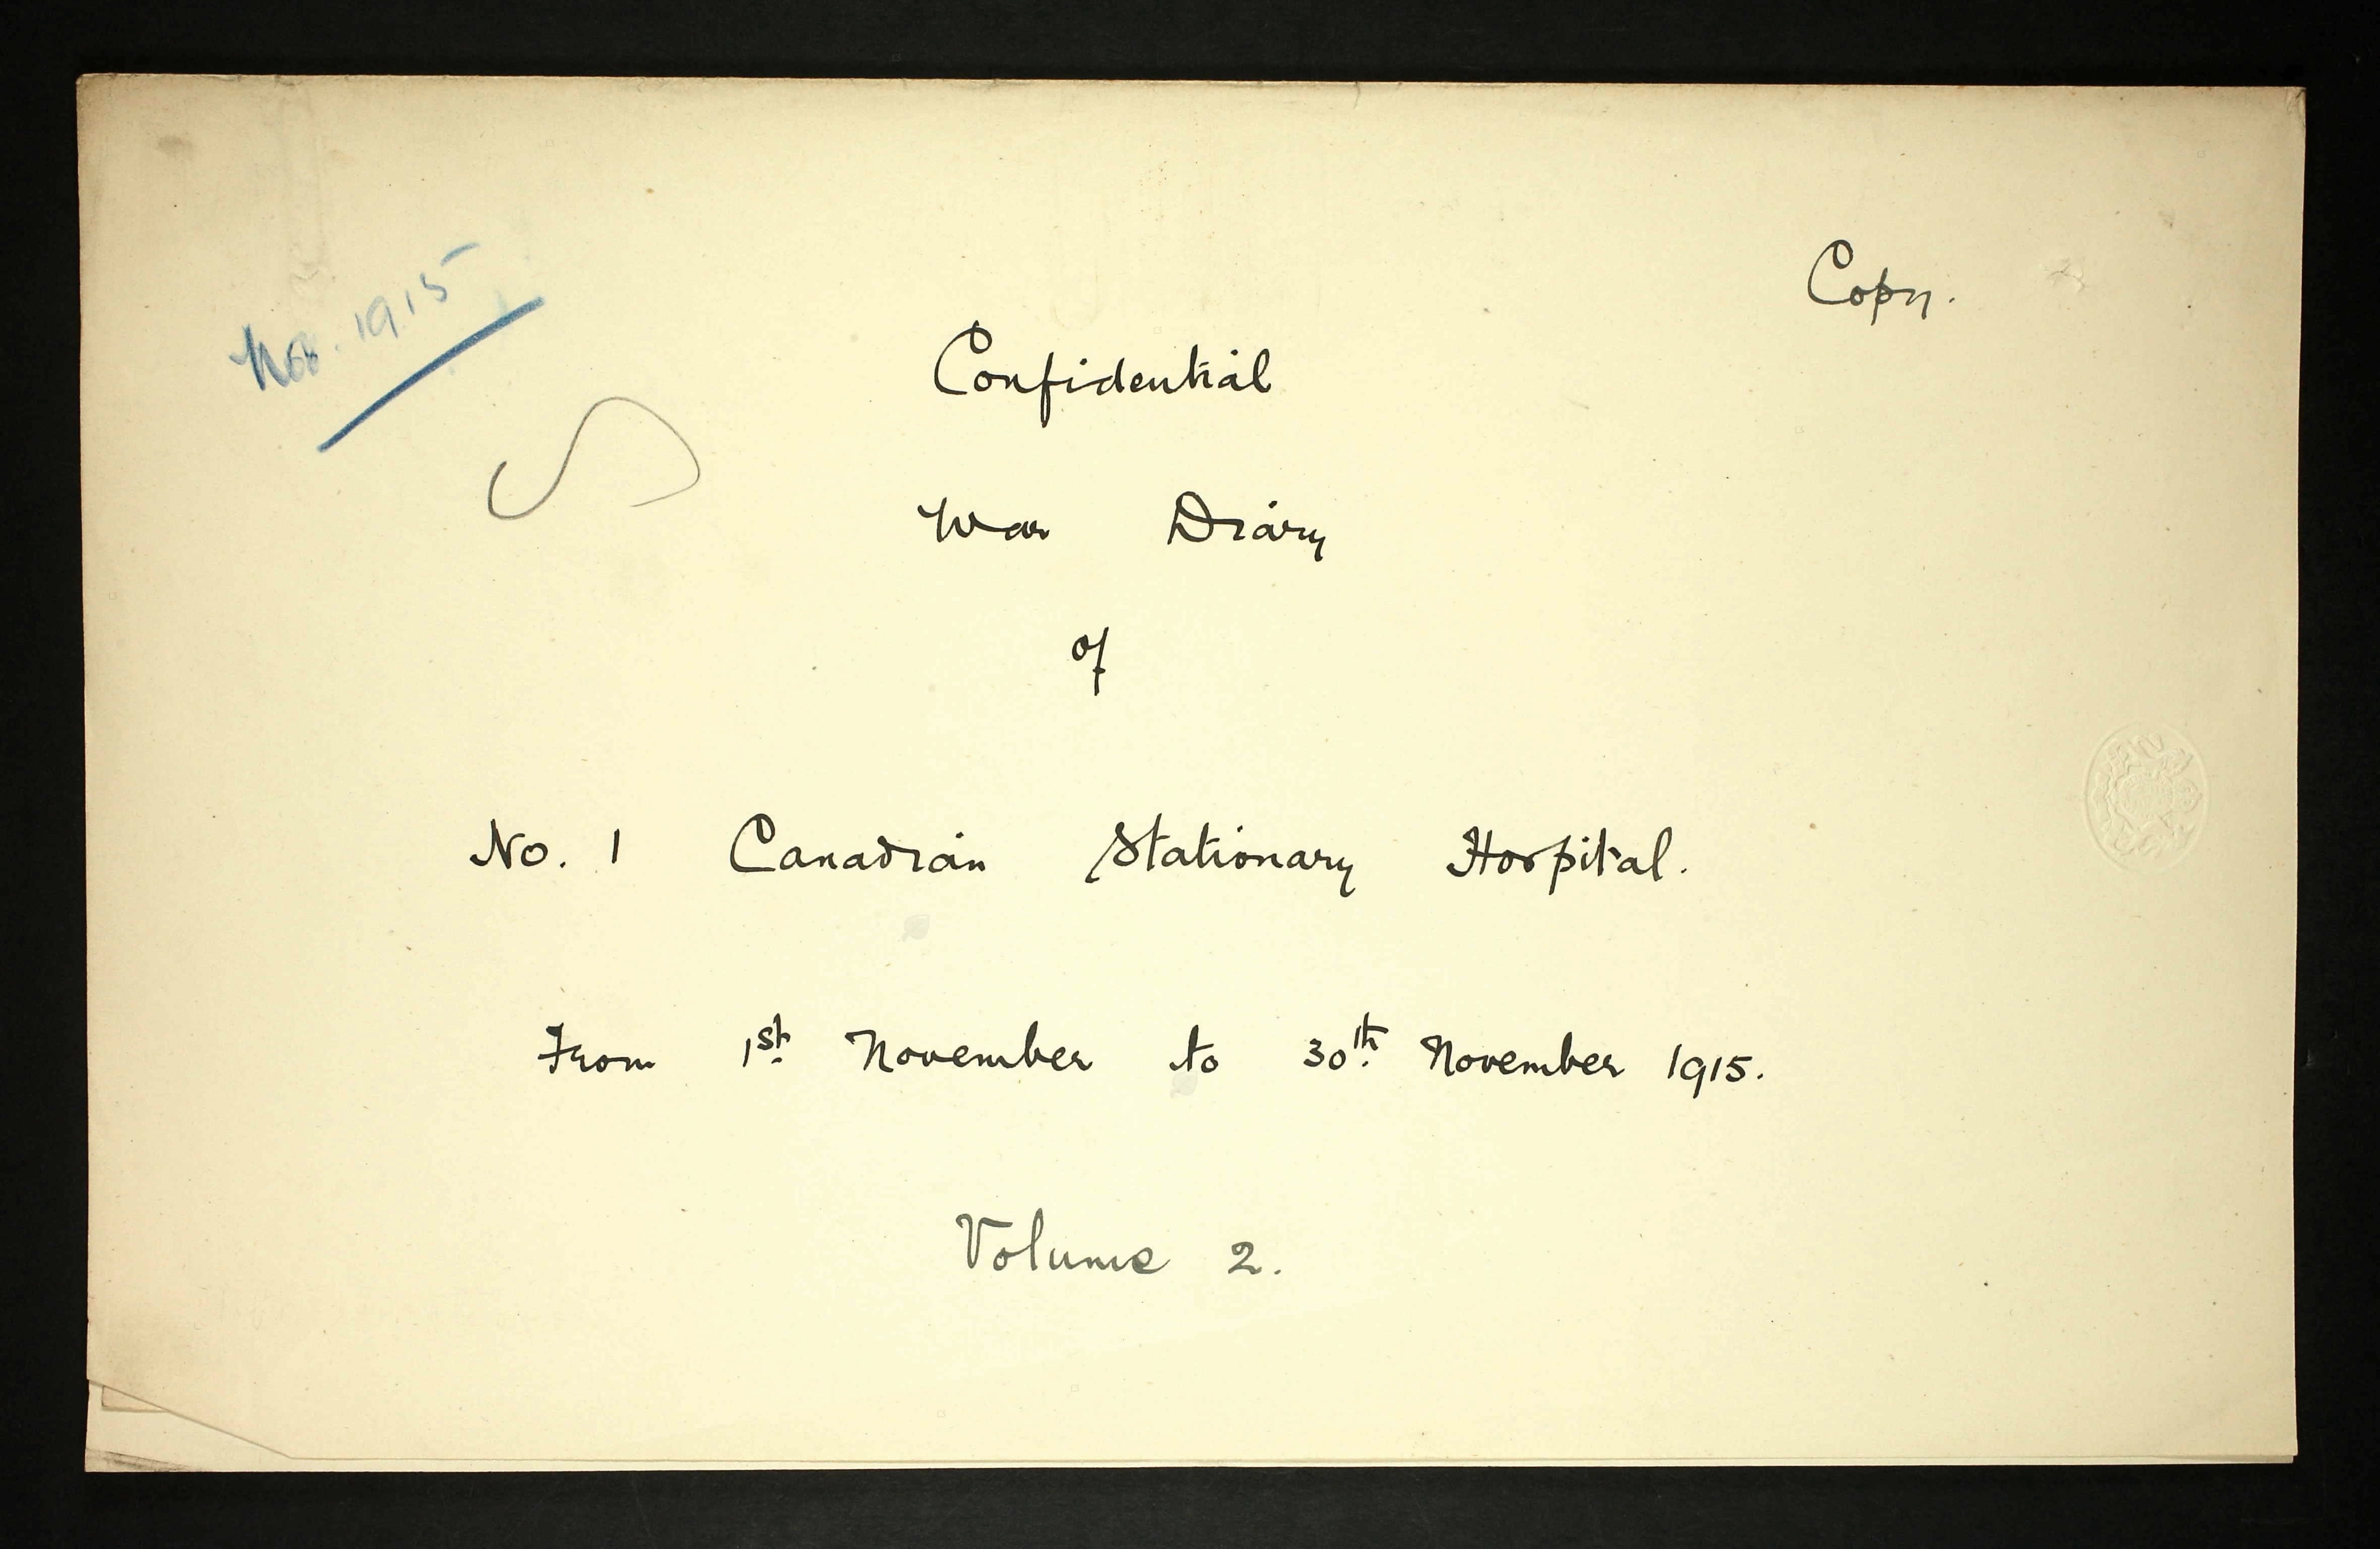 Nov. 1915
Copy.
Confidential
War Diary
of
No. 1 Canadian Stationary Hospital.
From 1st November to 30th November 1915.
Volume 2.